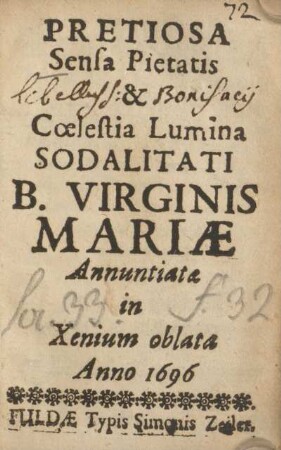 72
PRETIOSA
Sensa Pietatis
libellus: & Bonifacij
Cœlestia Lumina
SODALITATI
B. VIRGINIS
MARIÆ
Annuntiatæ
in
33. f. 32
Xenium oblata
Anno 1696
FULDÆ Typis Simonis Zeiler.